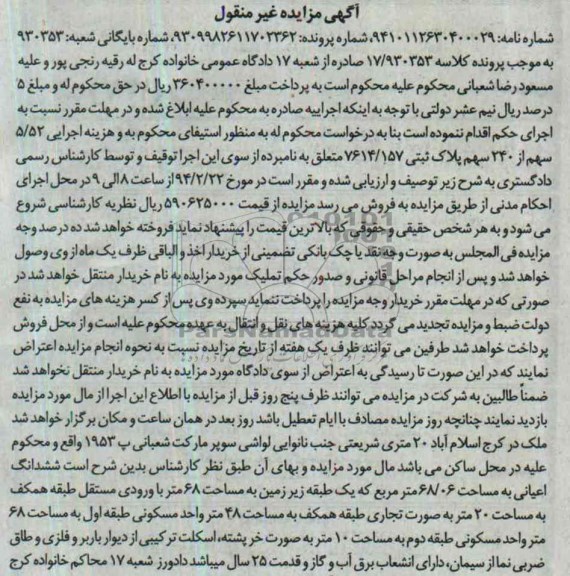 آگهی مزایده غیر منقول
شماره نامه: ۹۴۱۰۱۱۲۶۳۰۴۰۰۰۲۹، شماره پرونده: ۹۳۰۹۹۸۲۶۱۱۷۰۲۳۶۲، شماره بایگانی شعبه: ۹۳۰۳۵۳
به موجب پرونده کلاسه ۱۷/۹۳۰۳۵۳ صادره از شعبه ۱۷ دادگاه عمومی خانواده کرج له رقیه رنجی پور و علیه
مسعود رضا شعبانی محکوم علیه محکوم است به پرداخت مبلغ ۳۶۰۴۰۰۰۰۰ ریال در حق محکوم له و مبلغ ۵
درصد ریال نیم عشر دولتی با توجه به اینکه اجراییه صادره به محکوم علیه ابلاغ شده و در مهلت مقرر نسبت به
اجرای حکم اقدام ننموده است بنا به درخواست محکوم له به منظور استیفای محکوم به و هزینه اجرایی ۵/۵۲
سهم از ۲۴۰ سهم پلاک ثبتی ۷۶۱۴/۱۵۷ متعلق به نامبرده از سوی این اجرا توقیف و توسط کارشناس رسمی
دادگستری به شرح زیر توصیف و ارزیابی شده و مقرر است در مورخ ۹۴/۲/۲۲ از ساعت ۸ الی ۹ در محل اجرای
احکام مدنی از طریق مزایده به فروش می رسد مزایده از قیمت ۵۹۰۶۲۵۰۰۰ ریال نظریه کارشناسی شروع
می شود و به هر شخص حقیقی و حقوقی که بالاترین قیمت را پیشنهاد نماید فروخته خواهد شد ده درصد وجه
مزایده فی المجلس به صورت وجه نقد یا چک بانکی تضمینی از خریدار اخذ و الباقی ظرف یک ماه از وی وصول
خواهد شد و پس از انجام مراحل قانونی و صدور حکم تملیک مورد مزایده به نام خریدار منتقل خواهد شد در
صورتی که در مهلت مقرر خریدار وجه مزایده را پرداخت ننماید سپرده وی پس از کسر هزینه های مزایده به نفع
دولت ضبط و مزایده تجدید می گردد کلیه هزینه های نقل و انتقال به عهده محکوم علیه است و از محل فروش
پرداخت خواهد شد طرفین می توانند ظرف یک هفته از تاریخ مزایده نسبت به نحوه انجام مزایده اعتراض
نمایند که در این صورت تا رسیدگی به اعتراض از سوی دادگاه مورد مزایده به نام خریدار منتقل نخواهد شد
ضمناً طالبین به شرکت در مزایده می توانند ظرف پنج روز قبل از مزایده با اطلاع این اجرا از مال مورد مزایده
بازدید نمایند چنانچه روز مزایده مصادف با ایام تعطیل باشد روز بعد در همان ساعت و مکان برگزار خواهد شد
ملک در کرج اسلام آباد ۲۰ متری شریعتی جنب نانوایی لواشی سوپر مارکت شعبانی پ ۱۹۵۳ واقع و محکوم
علیه در محل ساکن می باشد مال مورد مزایده و بهای آن طبق نظر کارشناس بدین شرح است ششدانگ
اعیانی به مساحت ۶۸/۰۶ متر مربع که یک طبقه زیر زمین به مساحت ۶۸ متر با ورودی مستقل طبقه همکف
به مساحت ۲۰ متر به صورت تجاری طبقه همکف به مساحت ۴۸ متر واحد مسکونی طبقه اول به مساحت ۶۸
متر واحد مسکونی طبقه دوم به مساحت ۱۰ متر به صورت خر پشته، اسکلت ترکیبی از دیوار باربر و فلزی و طاق
ضربی نما از سیمان، دارای انشعاب برق آب و گاز و قدمت ۲۵ سال میباشد دادورز شعبه ۱۷ محاکم خانواده کرج